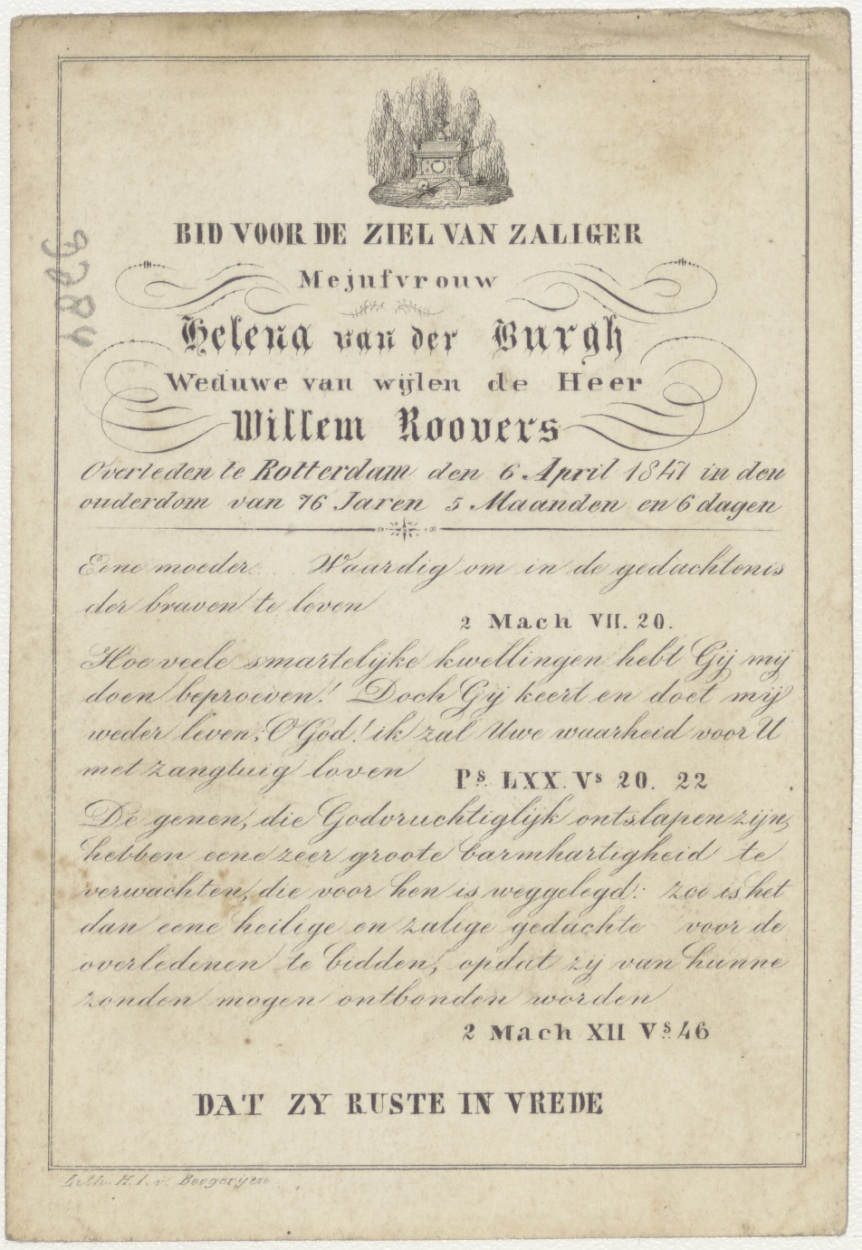 BID VOOR DE ZIEL VAN ZALIGER
Mejufvrouw
Helena van der Burgh
Weduwe van wijlen de Heer
Willem Roovers
Overleden te Rotterdam den 6 April 1847 in den
ouderdom van 76 Jaren 5 Maanden en 6 dagen
Eene moeder... Waardig om in de gedachtenis
der braven te leven
2 Mach VII. 20.
Hoe veele smartelijke kwellingen hebt Gij mij
doen beproeven! Doch Gij keert en doet mij
weder leven; O God! ik zal Uwe waarheid voor U
met zangtuig loven
Ps LXX. Vs 20. 22
De genen, die Godvruchtiglijk ontslapen zijn,
hebben eene zeer groote barmhartigheid te
verwachten, die voor hen is weggelegd: zoo is het
dan eene heilige en zalige gedachte voor de
overledenen te bidden, opdat zy van hunne
zonden mogen ontbonden worden
2 Mach XII Vs 46
DAT ZY RUSTE IN VREDE
Lith. H. I. v.